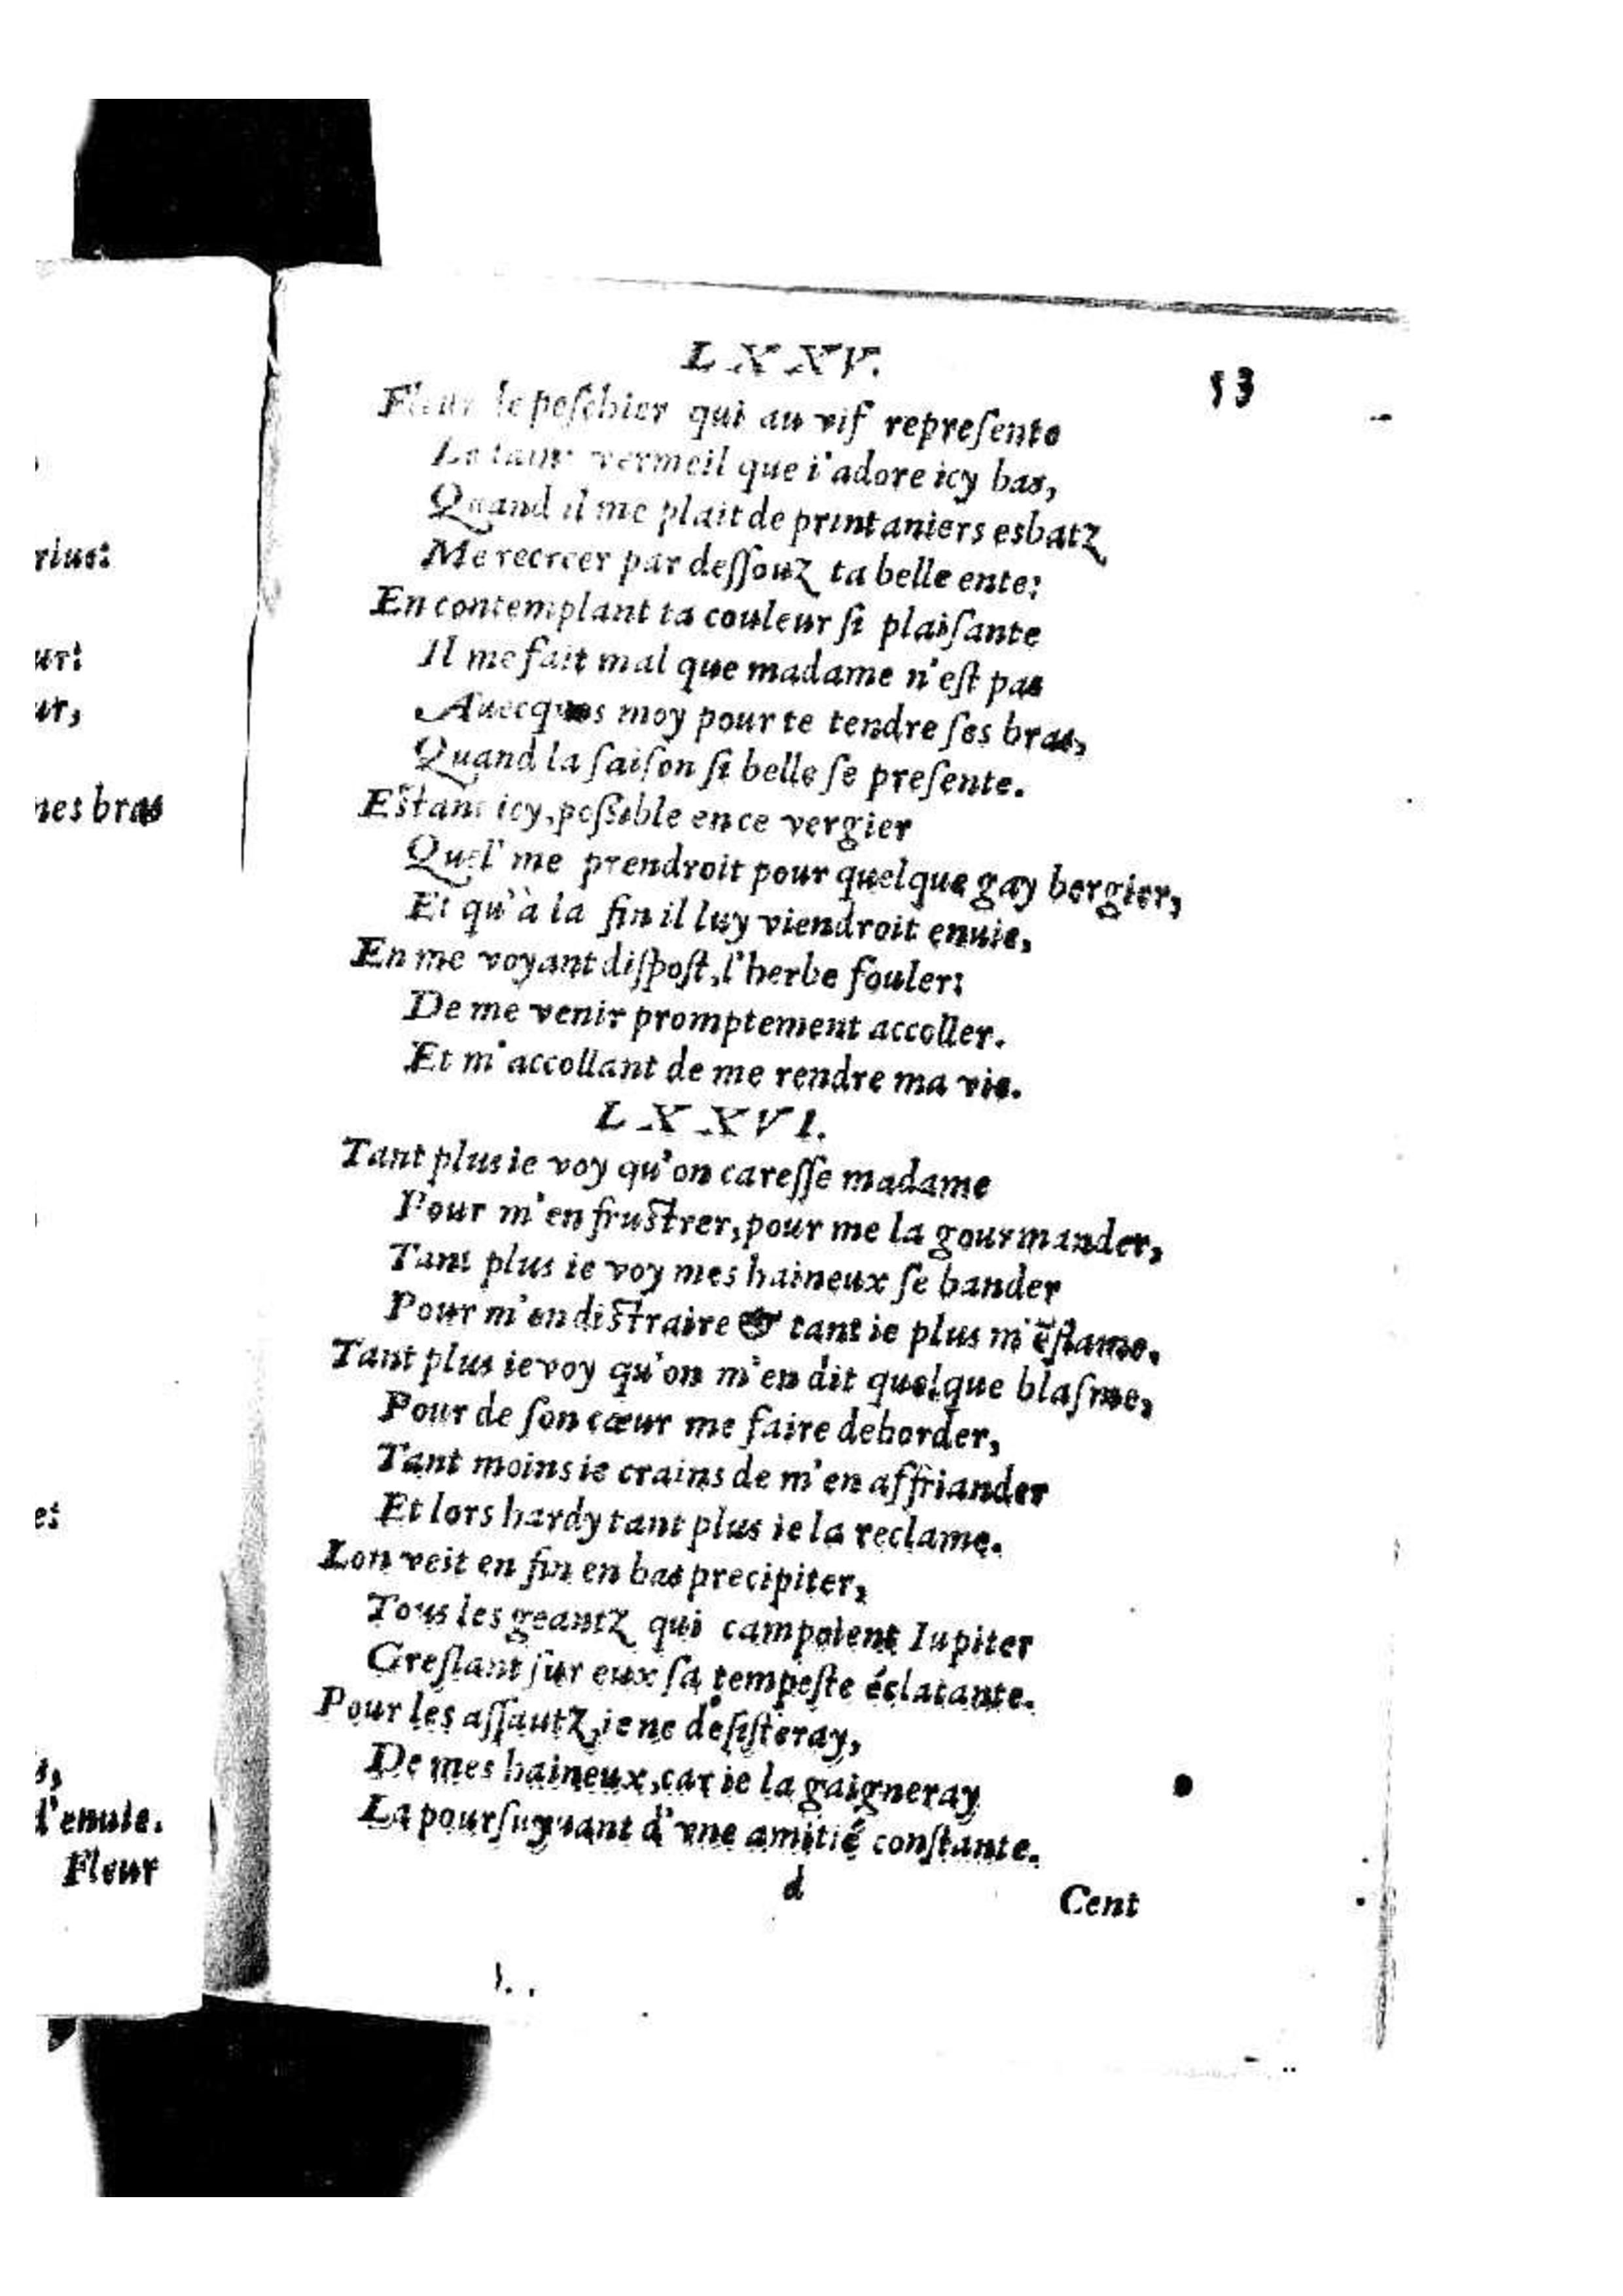 LXXV.
53
Fleur de peſchier qui au vif repreſente
Le taint vermeil que i'adore icy bas,
Quand il me plait de printaniers esbatz
Me recreer par deſſouz ta belle ente:
En contemplant ta couleur ſi plaiſante
Il me fait mal que madame n'eſt pas
Auecques moy pour te tendre ſes bras,
Quand la ſaiſon ſi belle ſe preſente.
Eſtant icy, poſsible en ce vergier
Quel' me prendroit pour quelque gay bergier,
Et qu'à la fin il luy viendroit enuie,
En me voyant diſpoſt, l'herbe fouler:
De me venir promptement accoller.
Et m'accollant de me rendre ma vie.
LXXVI.
Tant plus ie voy qu'on careſſe madame
Pour m'en fruſtrer, pour me la gourmander,
Tant plus ie voy mes haineux ſe bander
Pour m'en diſtraire & tant ie plus m'ẽflame.
Tant plus ie voy qu'on m'en dit quelque blaſme,
Pour de ſon cœur me faire deborder,
Tant moins ie crains de m'en affriander
Et lors hardy tant plus ie la reclame.
Lon veit en fin en bas precipiter,
Tous les geantz qui campoient Iupiter
Greſlant ſur eux ſa tempeſte éclatante.
Pour les aſſautz, ie ne deſiſteray,
De mes haineux, car ie la gaigneray
La pourſuyuant d'vne amitié conſtante.
d
Cent
rius:
ur:
ur,
mes bras
e:
s,
d'enuie.
Fleur